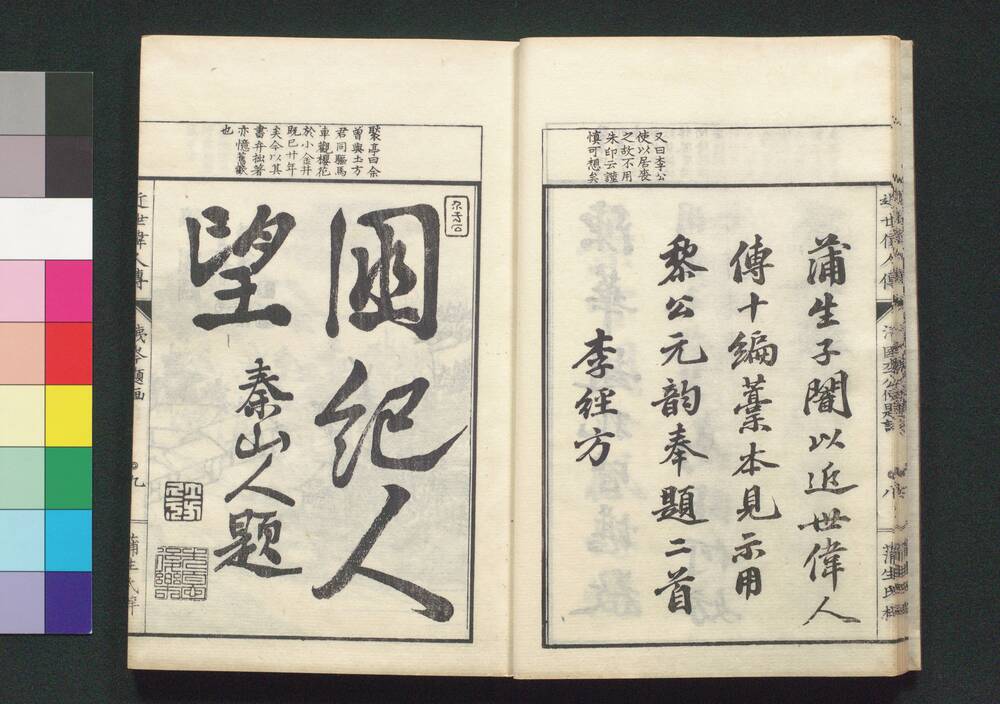 又曰李公
使以居喪
之故不用
朱印云謹
慎可想矣
蒲生子闇以近世偉人
傳十編藁本見示用
黎公元韵奉題二首
李經方
近世偉人傳
八
蒲生氏
聚亭曰余
曾與土方
君同驅馬
車觀櫻花
於小金井
既巳廿年
矣今以其
書弁拙著
亦憶舊歡
也
國紀人
望
秦山人題
近世偉人傳
題画
九
蒲生氏